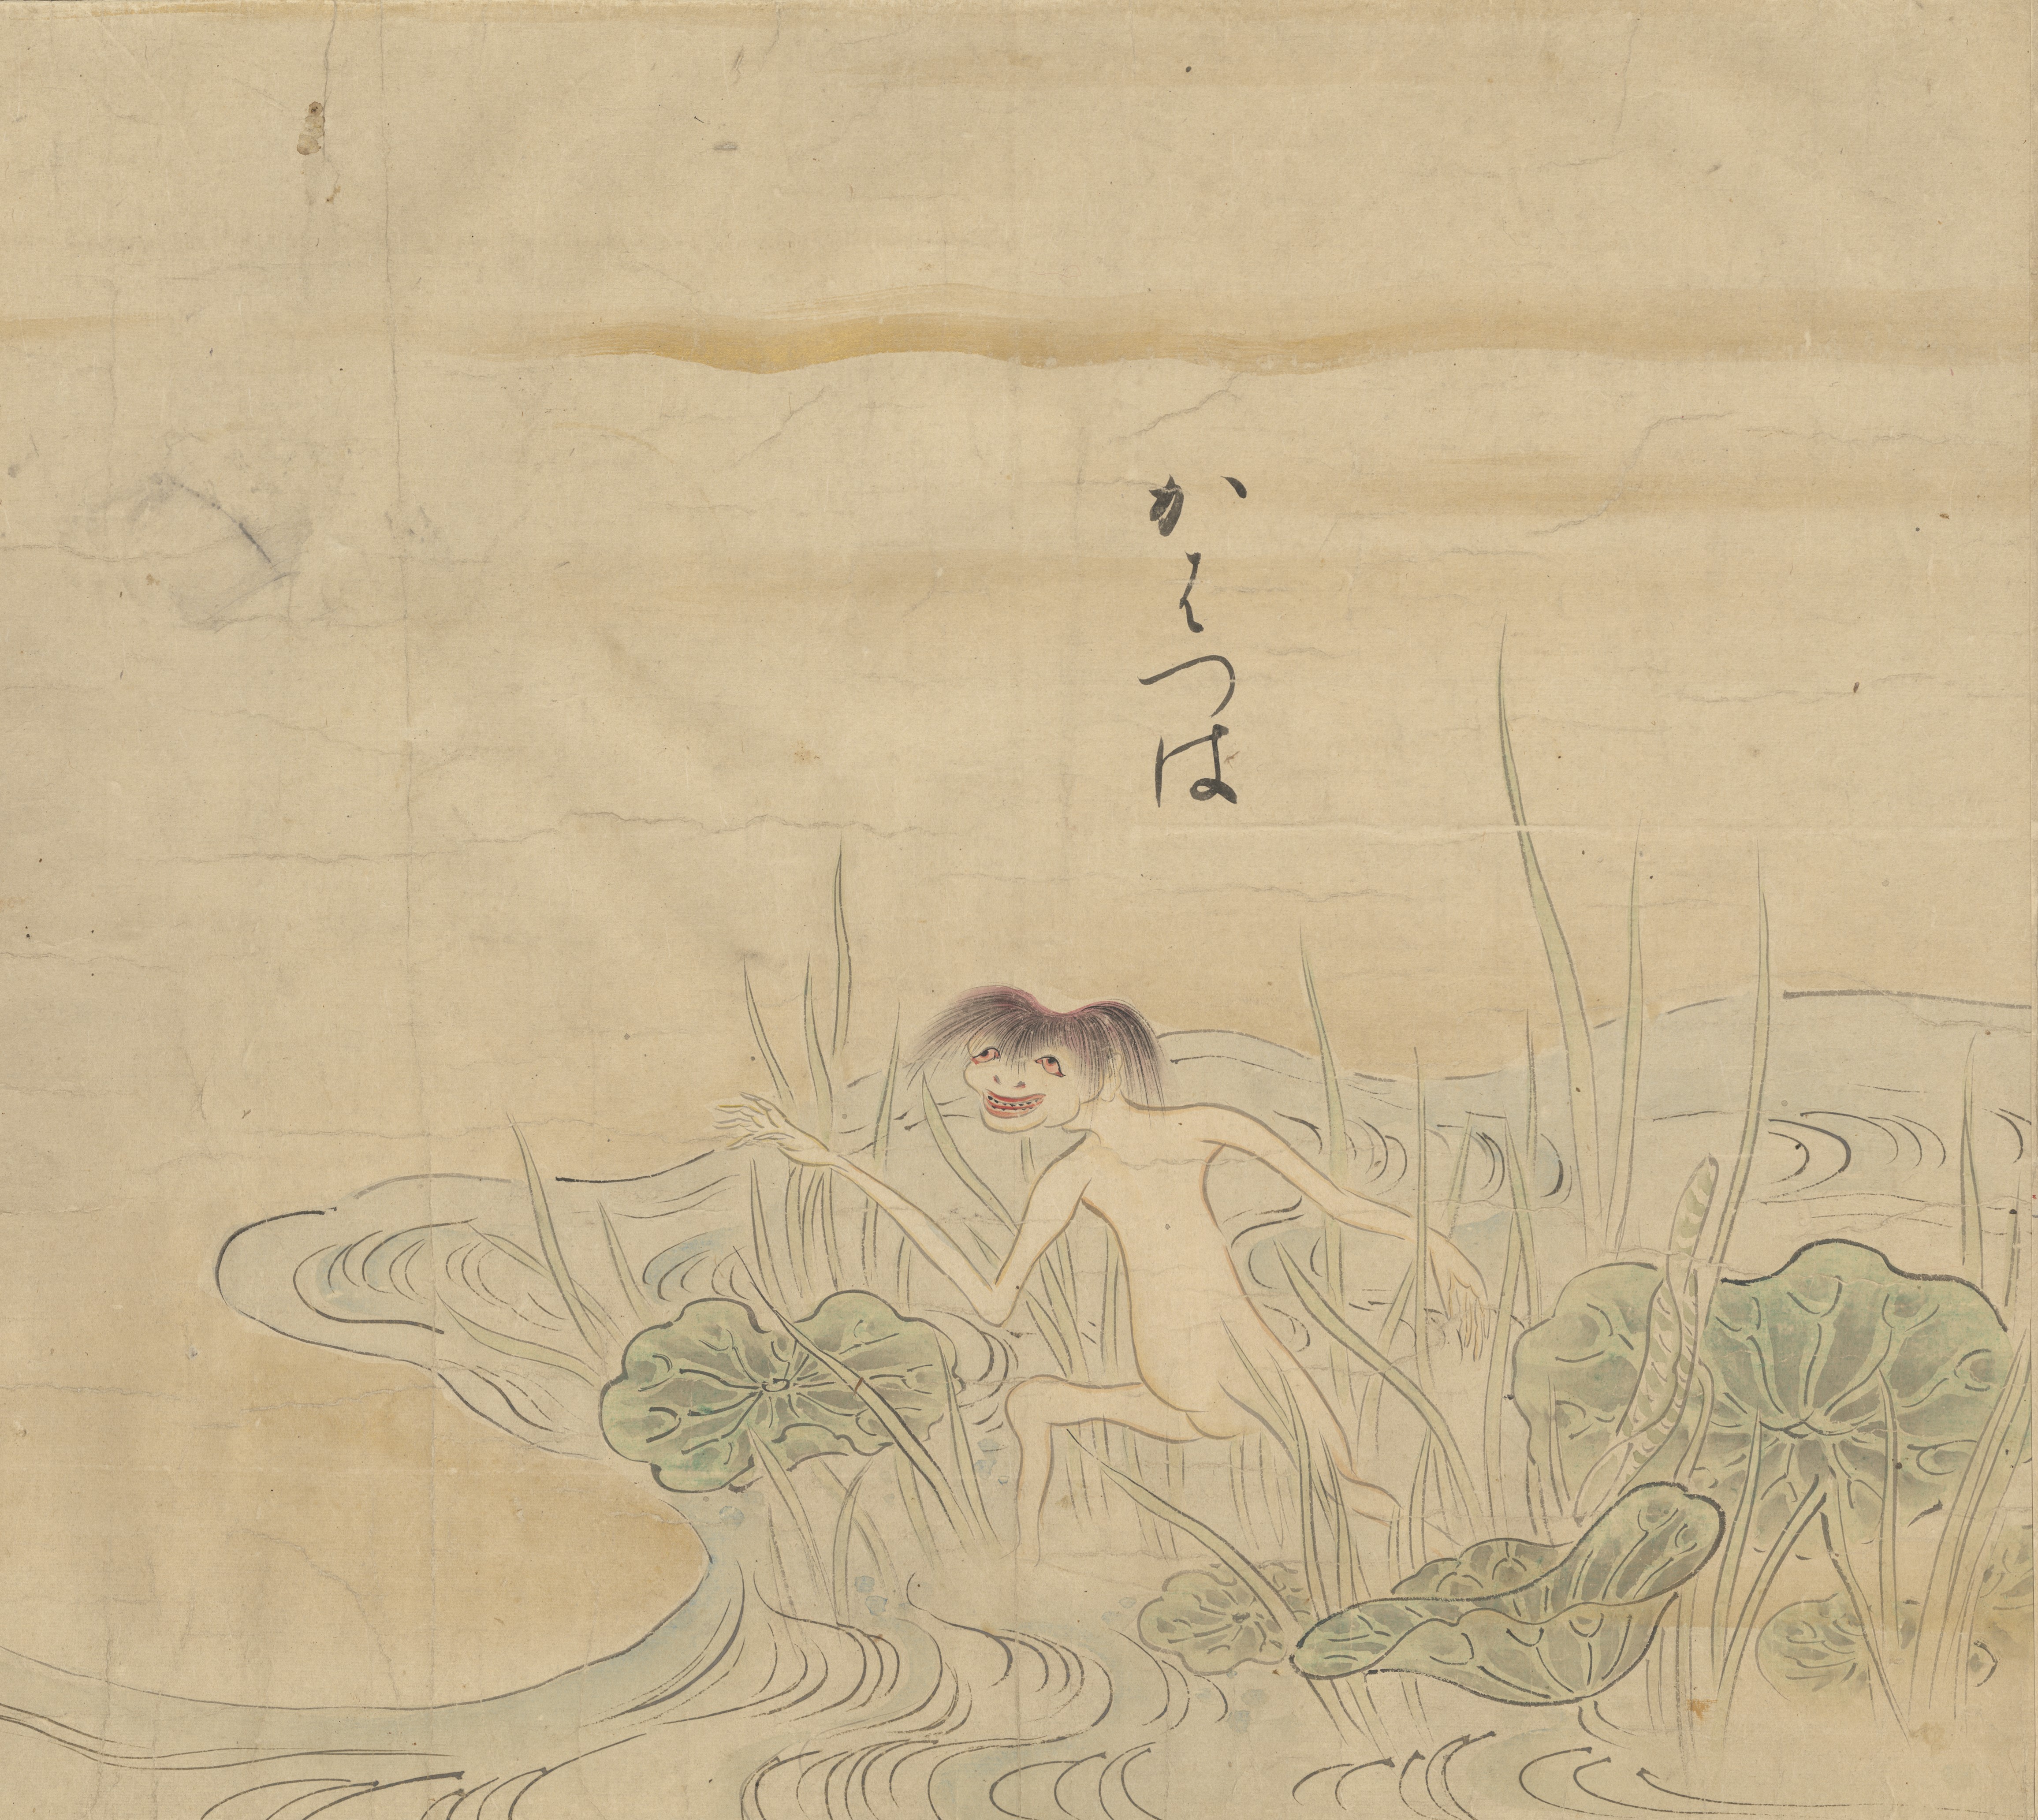 かはつは